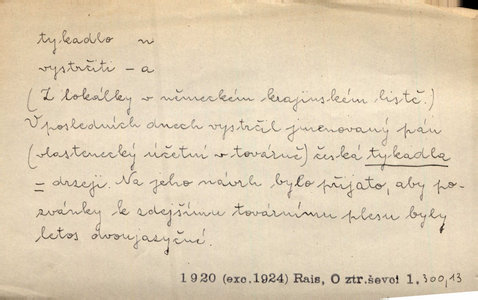 tykadlo n
vystrčiti – a
(Z lokálky v německém krajinském listě.)
V posledních dnech vystrčil jmenovaný pán
(vlastenecký účetní v továrně) česká tykadla
= drzeji. Na jeho návrh bylo přijato, aby po-
zvánky k zdejšímu továrnímu plesu byly
letos dvoujazyčné.
1920 (exc.1924) Rais, O ztr.ševci 1, 300,13